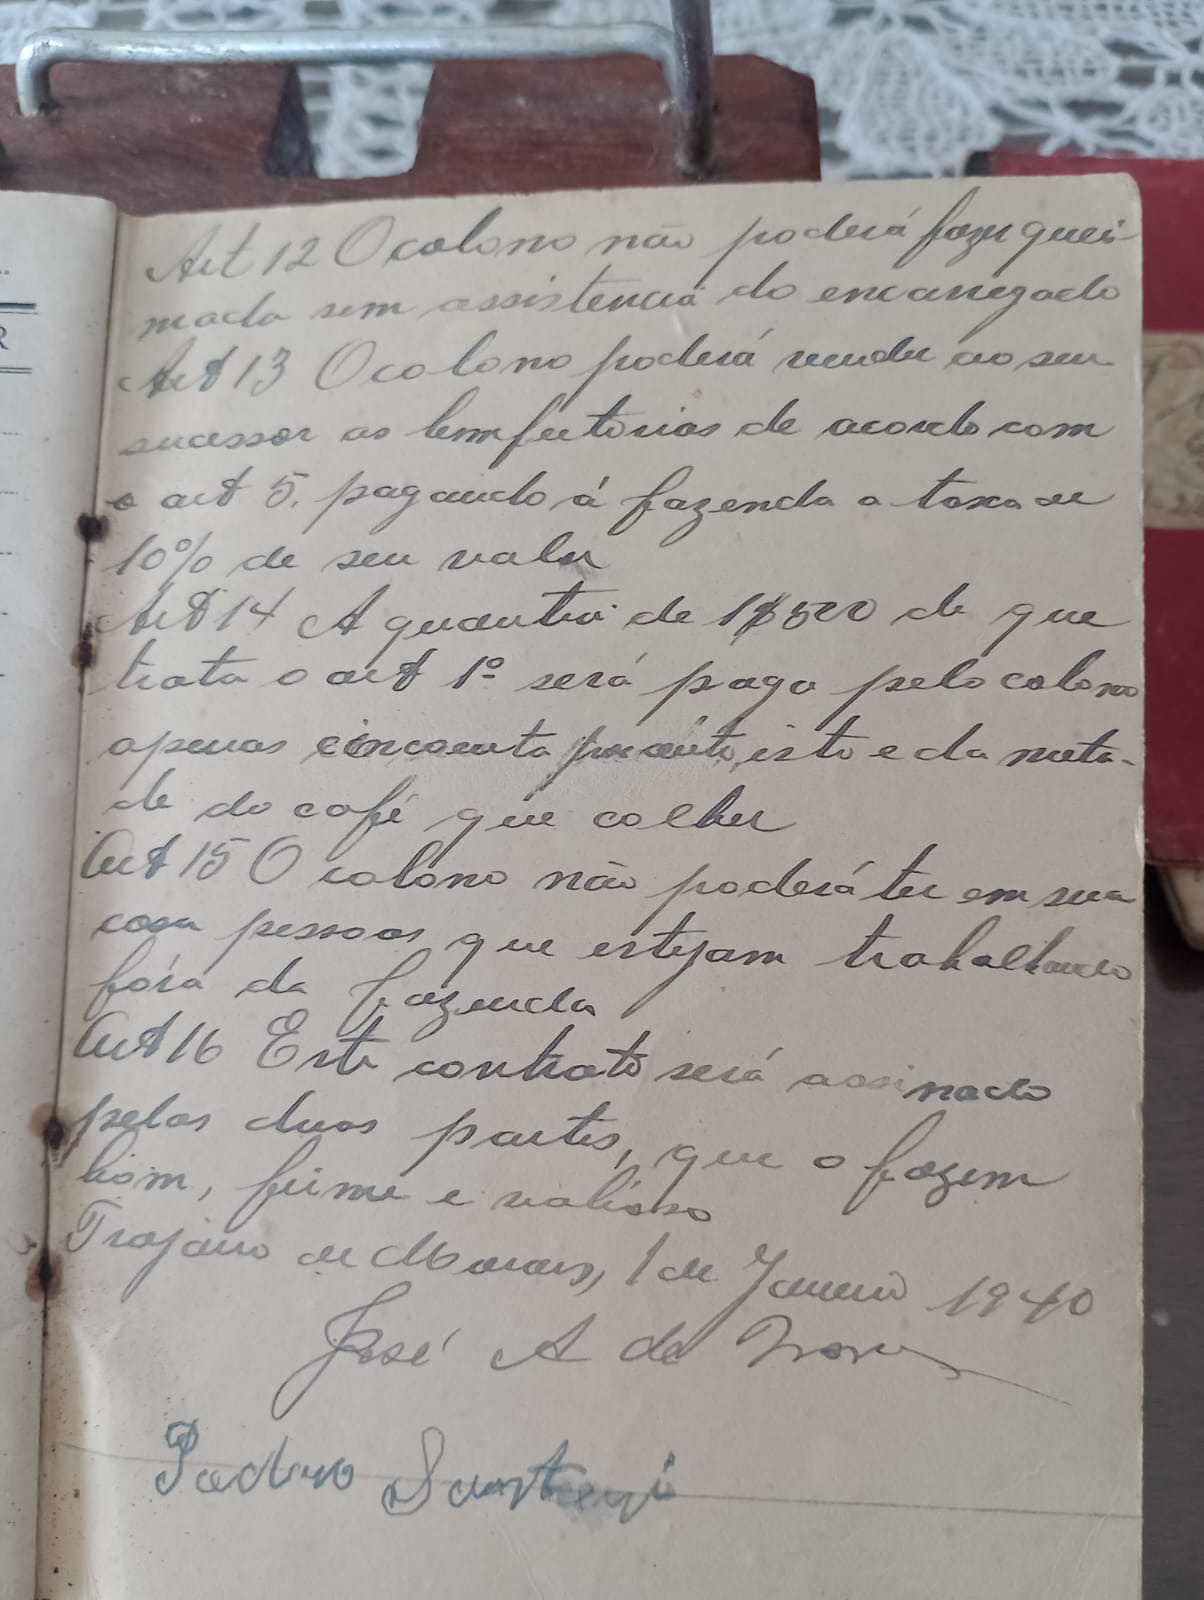 R
Art 12 O colono não poderá fazer quei-
mada sem assistencia do encarregado
Art 13 O colono poderá vender ao seu
sucessor as bemfeitorias de acordo com
o art 5. pagando á fazenda a taxa de
10% de seu valor
Art 14 A quantia de 1$500 de que
trata o art 1º será paga pelo colono
apenas cincoenta por cento, isto e da meta-
de do café que colher
Art 15 O colono não poderá ter em sua
casa pessoas que estejam trabalhando
fóra da fazenda
Art 16 Este contrato será assinado
pelas duas partes, que o fazem
bom, firme e valioso
Trajano de Moraes, 1 de Janeiro 1940
José A de